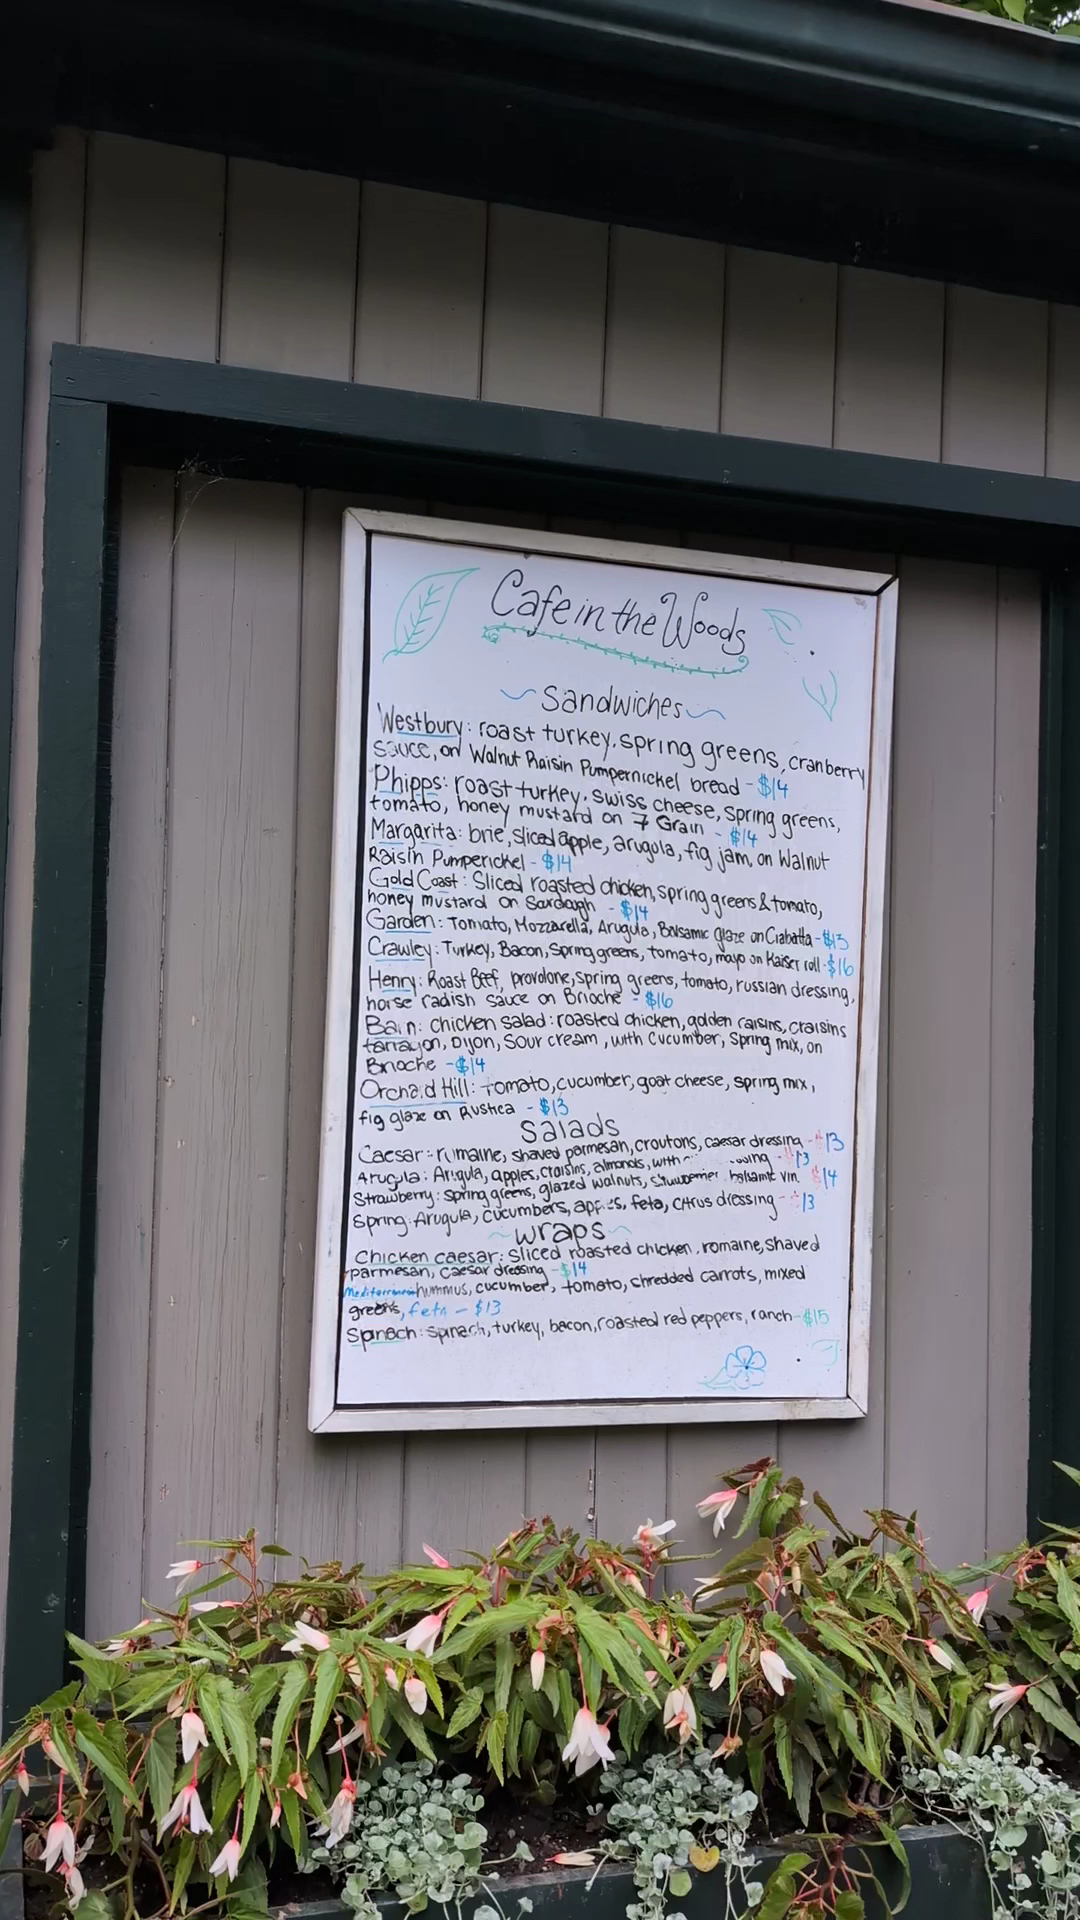 Cafe in the Woods
Sandwiches
Westbury: roast turkey, spring greens, cranberry
sauce, on Walnut Raisin Pumpernickel bread - $14
Phipps: roast turkey, swiss cheese, spring greens,
tomato, honey mustard on 7 Grain - $14
Margarita: brie, sliced apple, arugula, fig jam, on Walnut
Raisin Pumperickel - $14
Gold Coast: Sliced roasted chicken, spring greens & tomato,
honey mustard on Sourdough - $14
Garden: Tomato, Mozzarella, Arugula, Balsamic glaze on Ciabatta - $13
Crawley: Turkey, Bacon, Spring greens, tomato, mayo on Kaiser roll - $16
Henry: Roast Beef, provolone, spring greens, tomato, russian dressing,
horse radish sauce on Brioche - $16
Bain: chicken salad: roasted chicken, golden raisins, craisins
tarragon, Dijon, Sour cream, with Cucumber, Spring mix, on
Brioche - $14
Orchard Hill: Tomato, cucumber, goat cheese, spring mix,
fig glaze on Rustica - $13
Salads
Caesar: romaine, shaved parmesan, croutons, caesar dressing - $13
Arugula: Arugula, apples, craisins, almonds, with - $13
Strawberry: spring greens, glazed walnuts, strawberries balsamic vin. $14
Spring: Arugula, cucumbers, apples, feta, citrus dressing - $13
wraps
Chicken caesar: Sliced roasted chicken, romaine, shaved
parmesan, caesar dressing - $14
Mediterranean hummus, cucumber, tomato, shredded carrots, mixed
greens, feta - $13
Spinach: spinach, turkey, bacon, roasted red peppers, ranch - $15